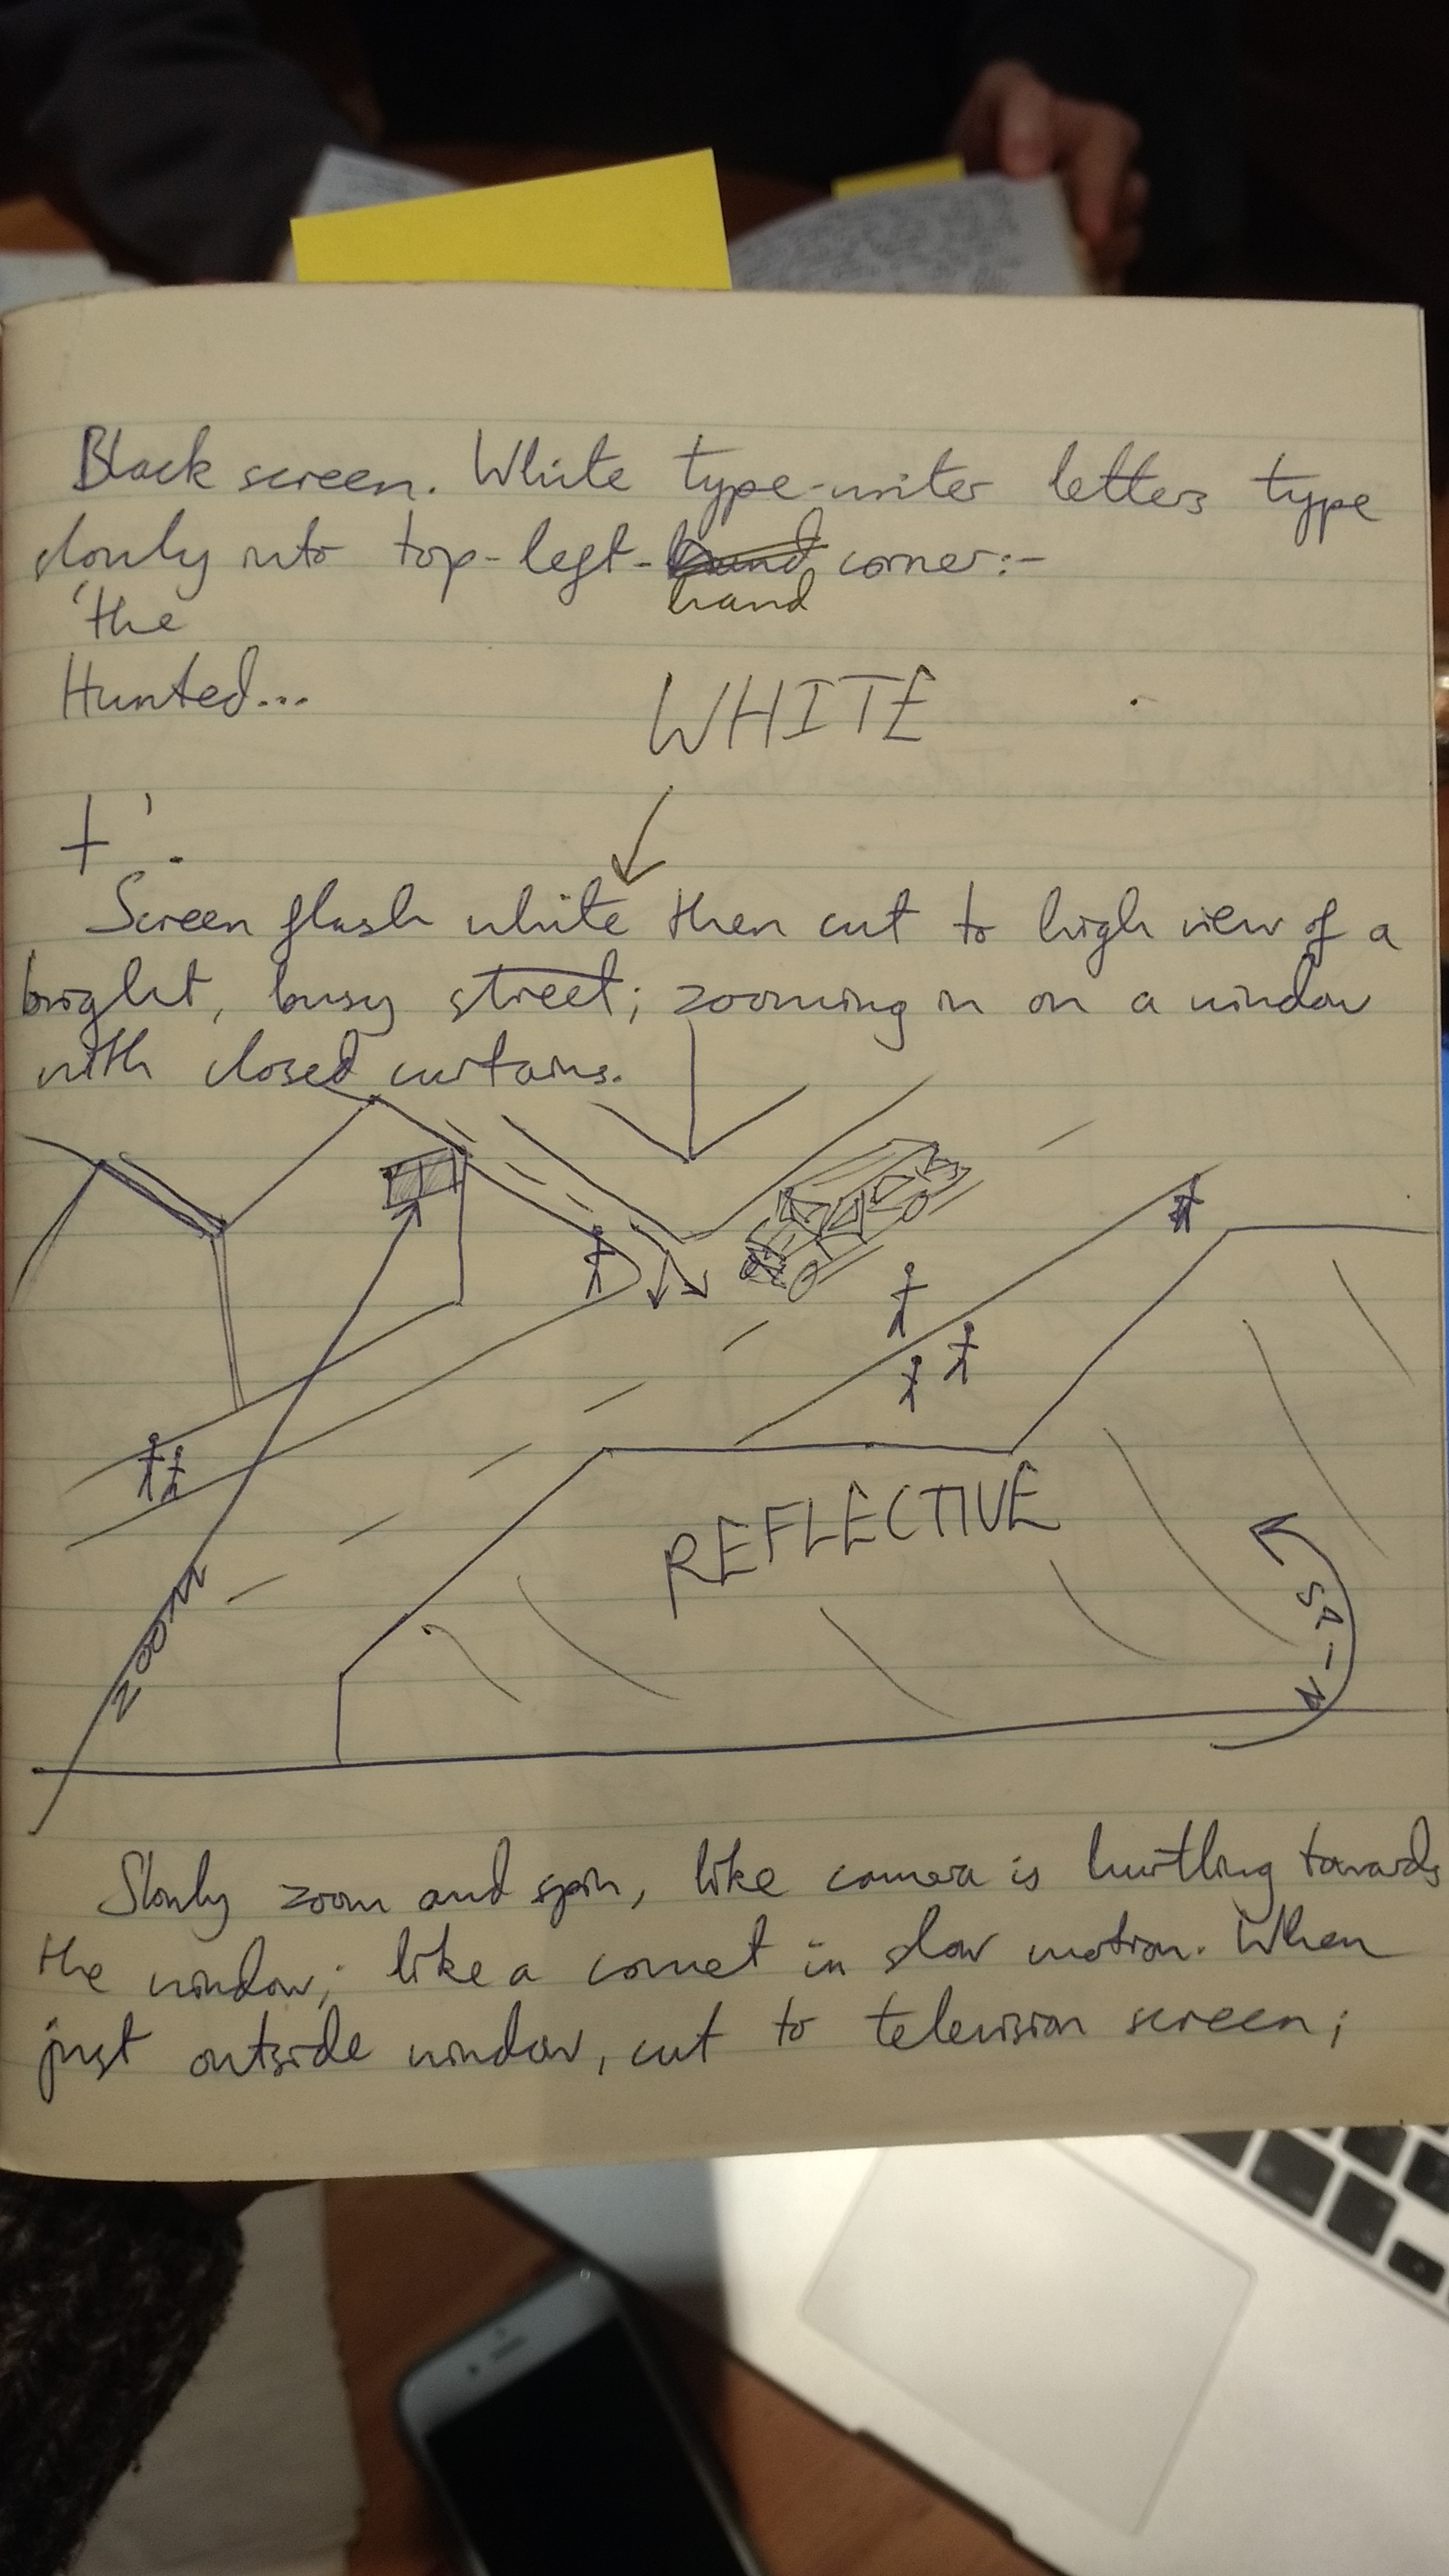 Black screen. White type-writer letters type
slowly into top-left-hand corner:-
hand
'the
Hunted...
WHITE
+'.
Screen flash white then cut to high view of a
bright, busy street; zooming in on a window
with closed curtains.
REFLECTIVE
SPIN
ZOOM
Slowly zoom and spin, like camera is hurtling towards
the window; like a comet in slow motion. When
just outside window, cut to television screen;